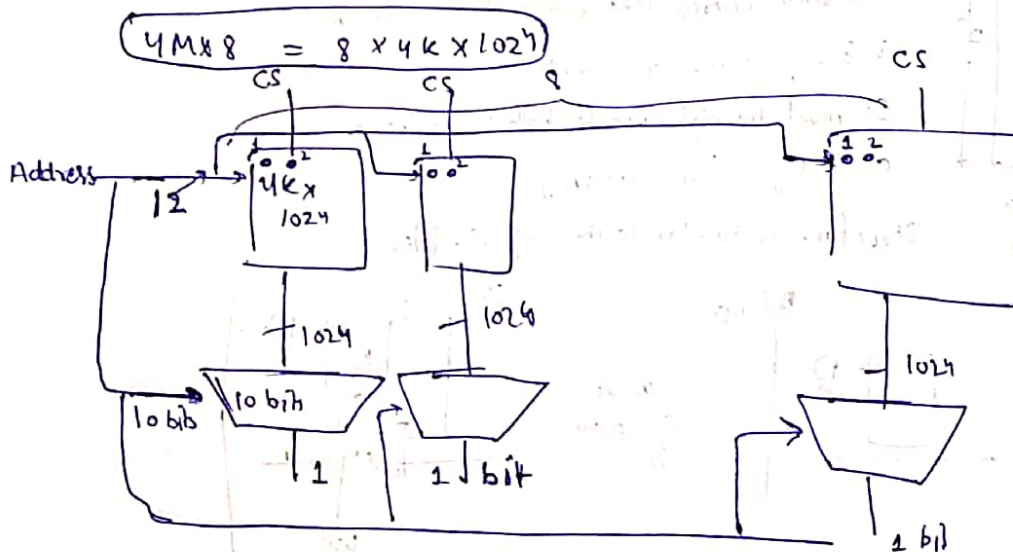 4M×8 = 8 × 4K × 1024
CS CS 8 CS
Address 12
1 2
4K×
1024
1 2
1 2
1024
1024
1024
10 bits
10 bits
1
1 bit
1 bit